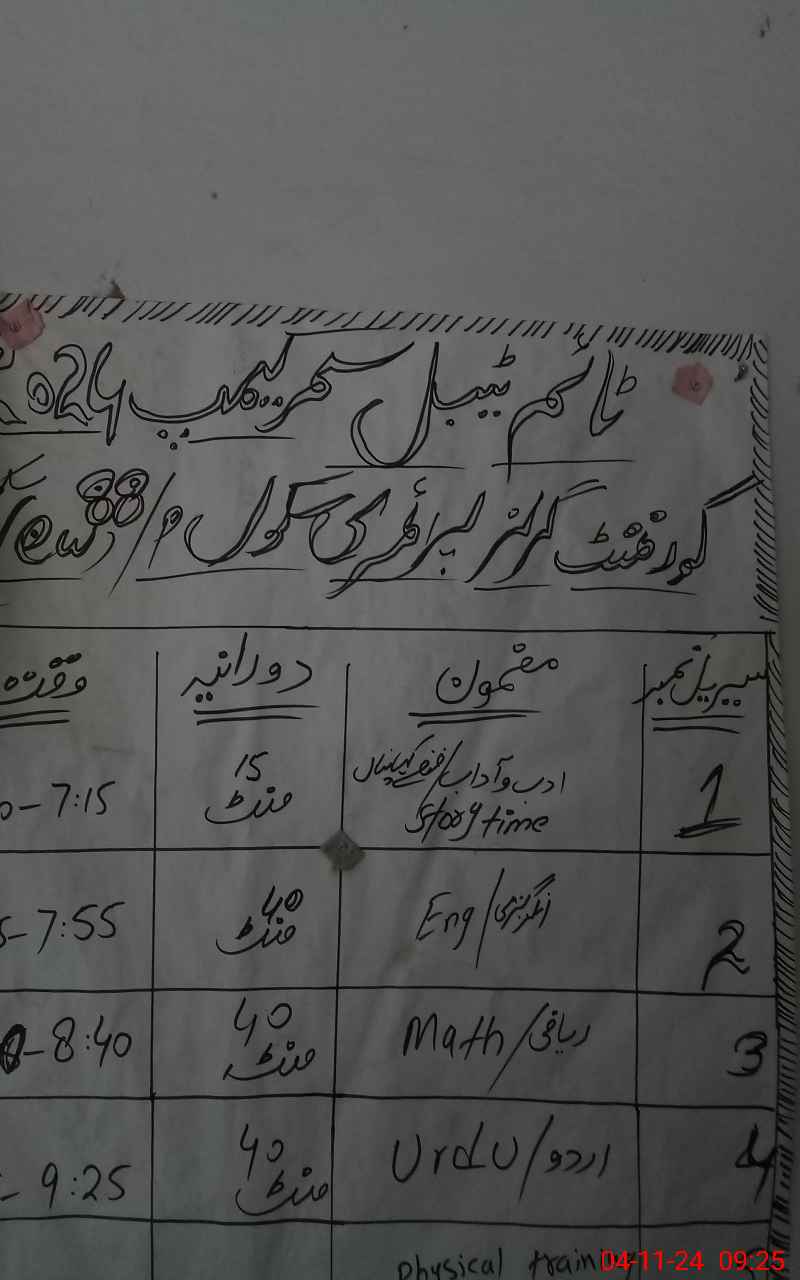 ٹائم ٹیبل سمر کیمپ 2024
گورنمنٹ گرلز پرائمری سکول 88/م
سیریل نمبر مضمون دورانیہ وقت
1 ادب و آداب/قصے کہانیاں 15 7:15
Story time منٹ
2 Eng/انگریزی 40 منٹ 7:55
3 Math/ریاضی 40 منٹ 8:40
4 Urdu/اردو 40 منٹ 9:25
physical training
04-11-24 09:25